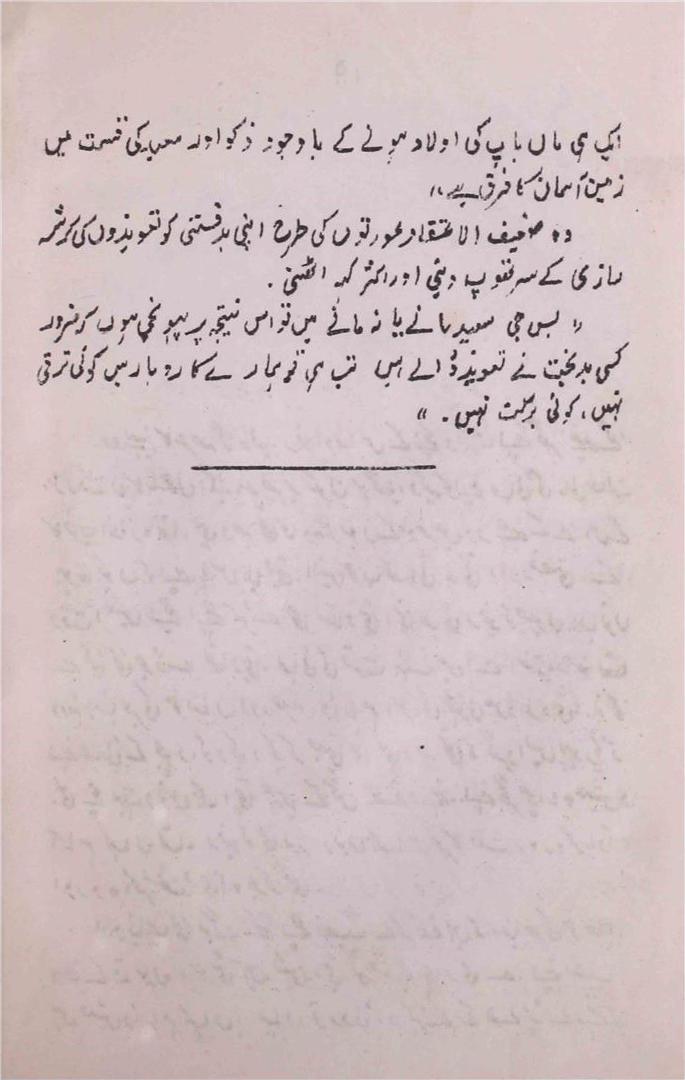 ایک ہی ماں باپ کی اولاد ہونے کے باوجود ذکو اور سعید کی قسمت میں
زمین آسمان کا فرق ہے۔"
وہ ضعیف الاعتقاد عورتوں کی طرح اپنی بدقسمتی کو تعویذوں کی کرشمہ
سازی کے سر تھوپ دیتی اور اکثر کہہ اٹھتی۔
"بس جی سعید مانے یا نہ مانے میں تو اس نتیجہ پر پہونچی ہوں کہ ضرور
کسی بدبخت نے تعویذ ڈالے ہیں تب ہی تو ہمارے کاروبار میں کوئی ترقی
نہیں، کوئی برکت نہیں۔"